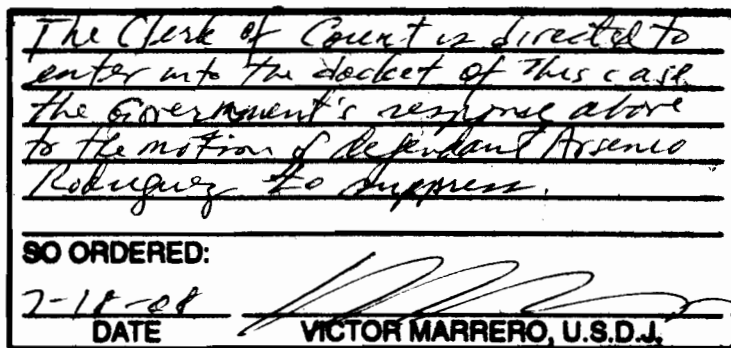 The Clerk of Court is directed to
enter into the docket of this case
the Government's response above
to the motion of defendant Arsenio
Rodriguez to suppress.
SO ORDERED:
7-18-08
DATE VICTOR MARRERO, U.S.D.J.